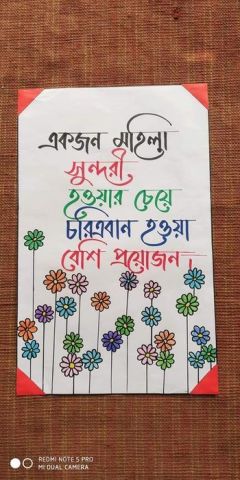 একজন মহিলা
সুন্দরী
হওয়ার চেয়ে
চরিত্রবান হওয়া
বেশি প্রয়োজন।
REDMI NOTE 5 PRO
MI DUAL CAMERA